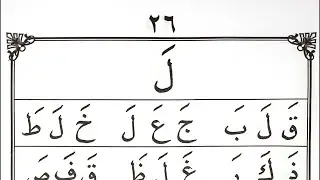 ٢٦
لَ
قَ لَ بَ جَ عَ لَ خَ لَ طَ
ذَ كَ رَ غَ لَ ظَ قَ فَ صَ